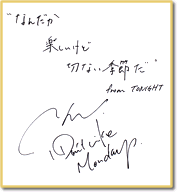 "なんだか
楽しいけど
切ない季節だ"
from TONIGHT
I Don't Like
Mondays.